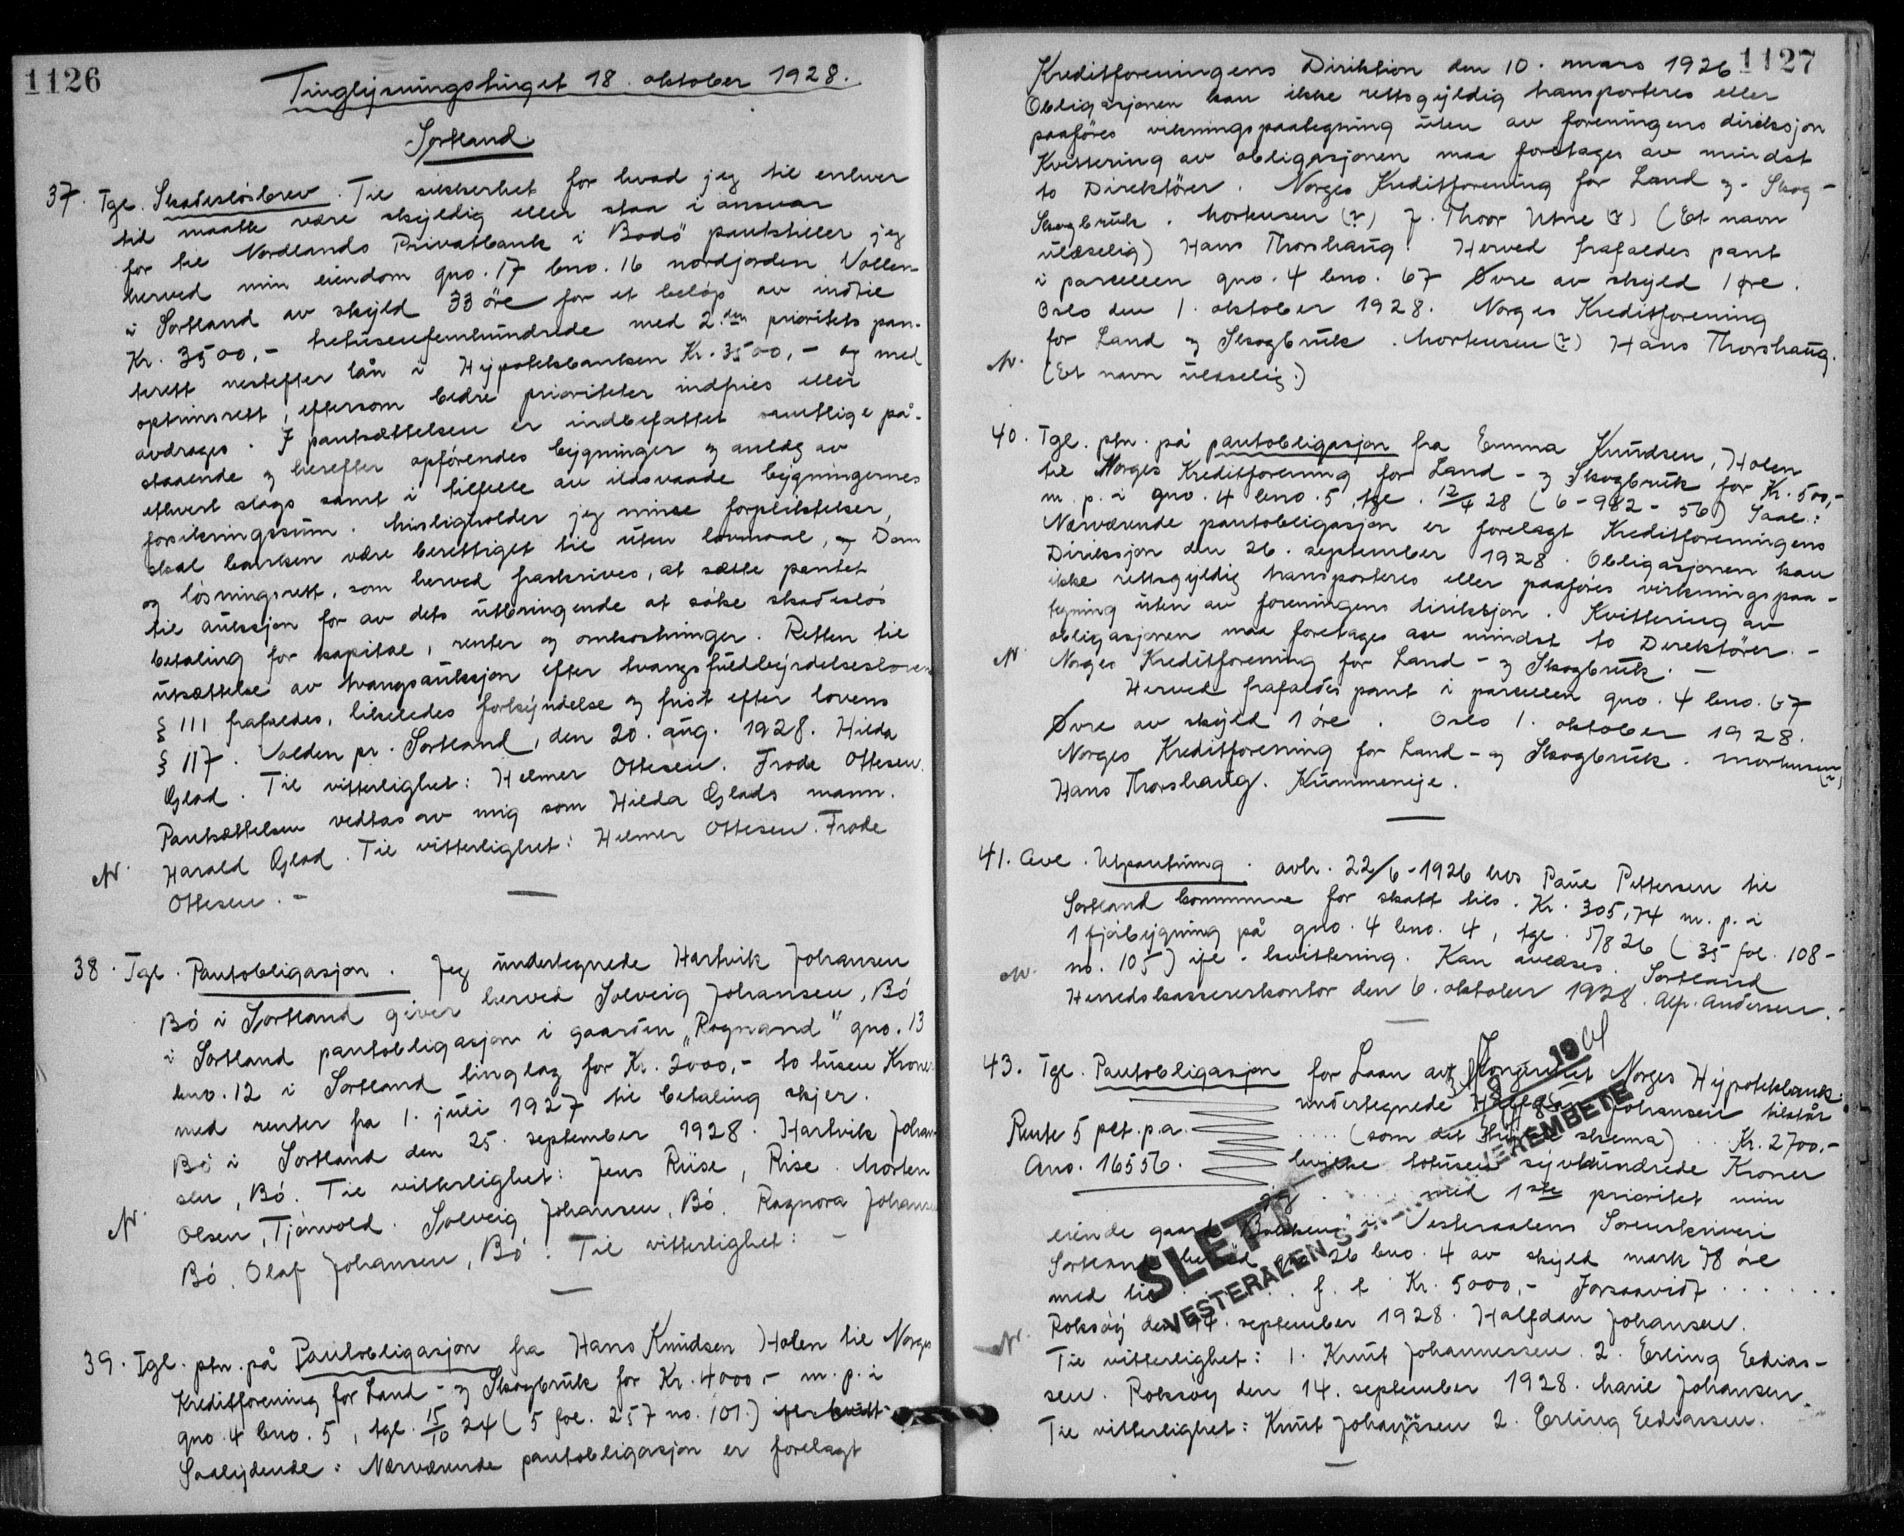 1126
Tinglysningstinget 18. oktober 1928.
Sortland
37. Tgl. Skadeslösbrev. Til sikkerhet for hvad jeg til enhver
tid maatte være skyldig eller staa i ansvar
for til Nordlands Privatbank i Bodö pantstiller jeg
herved min eiendom gno. 17 bno. 16 nordjorden Vollen
i Sortland av skyld 33 öre for et beløp av indtil
Kr. 3500,- tretusenfemhundrede med 2.den prioritets pan-
terett nestefter lån i Hypotekbanken Kr. 3500,- og med
optrinsrett, eftersom bedre prioriteter indfries eller
avdrages. I pantsættelsen er indbefattet samtlige på-
staaende og herefter opförendes bygninger og anlæg av
ethvert slags samt i tilfelle av ildsvaade bygningernes
forsikringssum. Misligholder jeg mine forpliktelser,
skal banken være berettiget til uten lovmaal, og Dom
og lösningsrett, som herved fraskrives, at sætte pantet
til auksjon for av dets utbringende at söke skadeslös
betaling for kapital, renter og omkostninger. Retten til
utsættelse av tvangsauksjon efter tvangsfuldbyrdelsesloven
§ 111 frafaldes, likeledes forkyndelse og frist efter lovens
§ 117. Valden pr. Sortland, den 20. aug. 1928. Hilda
Glad. Til vitterlighet: Helmer Ottesen. Frode Ottesen.
Pantsættelsen vedtas av mig som Hilda Glads mann.
N. Harald Glad. Til vitterlighet: Helmer Ottesen. Frode
Ottesen. -
38. Tgl. Pantobligasjon. Jeg undertegnede Hartvik Johansen
Bö i Sortland giver herved Solveig Johansen, Bö
i Sortland pantobligasjon i gaarden "Rognand" gno. 13
bno. 12 i Sortland tinglag for Kr. 2000,- to tusen Kroner
med renter fra 1. juli 1927 til betaling skjer.
Bö i Sortland den 25. september 1928. Hartvik Johan-
sen, Bö. Til vitterlighet: Jens Riise, Rise. Morten
N. Olsen, Tjörvold. Solveig Johansen, Bö. Ragnora Johansen
Bö. Olaf Johansen, Bö. Til vitterlighet: -
39. Tgl. ptn. på Pantobligasjon fra Hans Knudsen Holen til Norges
Kreditforening for Land- og Skogbruk for Kr. 4000,- m. p. i
gno. 4 bno. 5, tgl. 15/10 24 (5 fol. 257 no. 101.) ifl. kvitt.
Saalydende: Nærværende pantobligasjon er forelagt
1127
Kreditforeningens Direktion den 10. mars 1926
Obligasjonen kan ikke rettsgyldig transporteres eller
paaföres virkningspaategning uten av foreningens direksjon
Kvittering av obligasjonen maa foretages av mindst
to Direktörer. Norges Kreditforening for Land og- Skog-
Skogbruk. Mortensen (?) J. Thoor Utne (?) (Et navn
ulæselig) Hans Thorshaug. Herved frafaldes pant
i parcellen gno. 4 bno. 67 Øvre av skyld 1 øre.
Oslo den 1. oktober 1928. Norges Kreditforening
for Land og Skogbruk. Mortensen (?) Hans Thorshaug.
N. (Et navn ulæselig.)
40. Tgl. ptn. på pantobligasjon fra Emma Knudsen, Holen
til Norges Kreditforening for Land- og Skogbruk for Kr. 500,-
m. p. i gno. 4 bno. 5, tgl. 12/4 28 (6-982-56) Saal:
Nærværende pantobligasjon er forelagt Kreditforeningens
Direksjon den 26. september 1928. Obligasjonen kan
ikke rettsgyldig transporteres eller paaføres virkningspaa-
tegning uten av foreningens direksjon. Kvittering av
obligasjonen maa foretages av mindst to Direktörer. -
N. Norges Kreditforening for Land- og Skogbruk. -
Herved frafaldes pant i parcellen gno. 4 bno. 67
Øvre av skyld 1 öre. Oslo 1. oktober 1928.
Norges Kreditforening for Land- og Skogbruk. Mortensen (?)
Hans Thorshaug. Kummeneje.
41. Avl. Utpantning. avh. 22/6-1926 hos Paul Pettersen til
Sortland kommune for skatt tils. Kr. 305,74 m. p. i
1 fjösbygning på gno. 4 bno. 4, tgl. 5/8 26 (35 fol. 108-
N. no. 105) ifl. kvittering. Kan avlæses. Sortland
Herredskassererkontor den 6. oktober 1928. Alf. Andersen. -
43. Tgl. Pantobligasjon for Laan av Kongeriket Norges Hypotekbank.
undertegnede Halfdan Johansen tilstår
Rente 5 pct. p.a. .... (som det skema) .. Kr. 2700,-
Ano. 16556. hvilke totusen syvhundrede Kroner
..... med 1ste prioritet min
eiende gaard i Vesteraalens Sorenskriveri
Sortland 26 bno. 4 av skyld mark 78 öre
med til ..... f. t. Kr. 5000,- Forsaavidt ......
Roksöy den 14. september 1928. Halfdan Johansen.
N. Til vitterlighet: 1. Knut Johannessen. 2. Erling Eedias-
sen. Roksöy den 14. september 1928. Marie Johansen.
Til vitterlighet: Knut Johanssen 2. Erling Eediassen.
SLETT
VESTERÅLEN SORENSKRIVEREMBETE
19